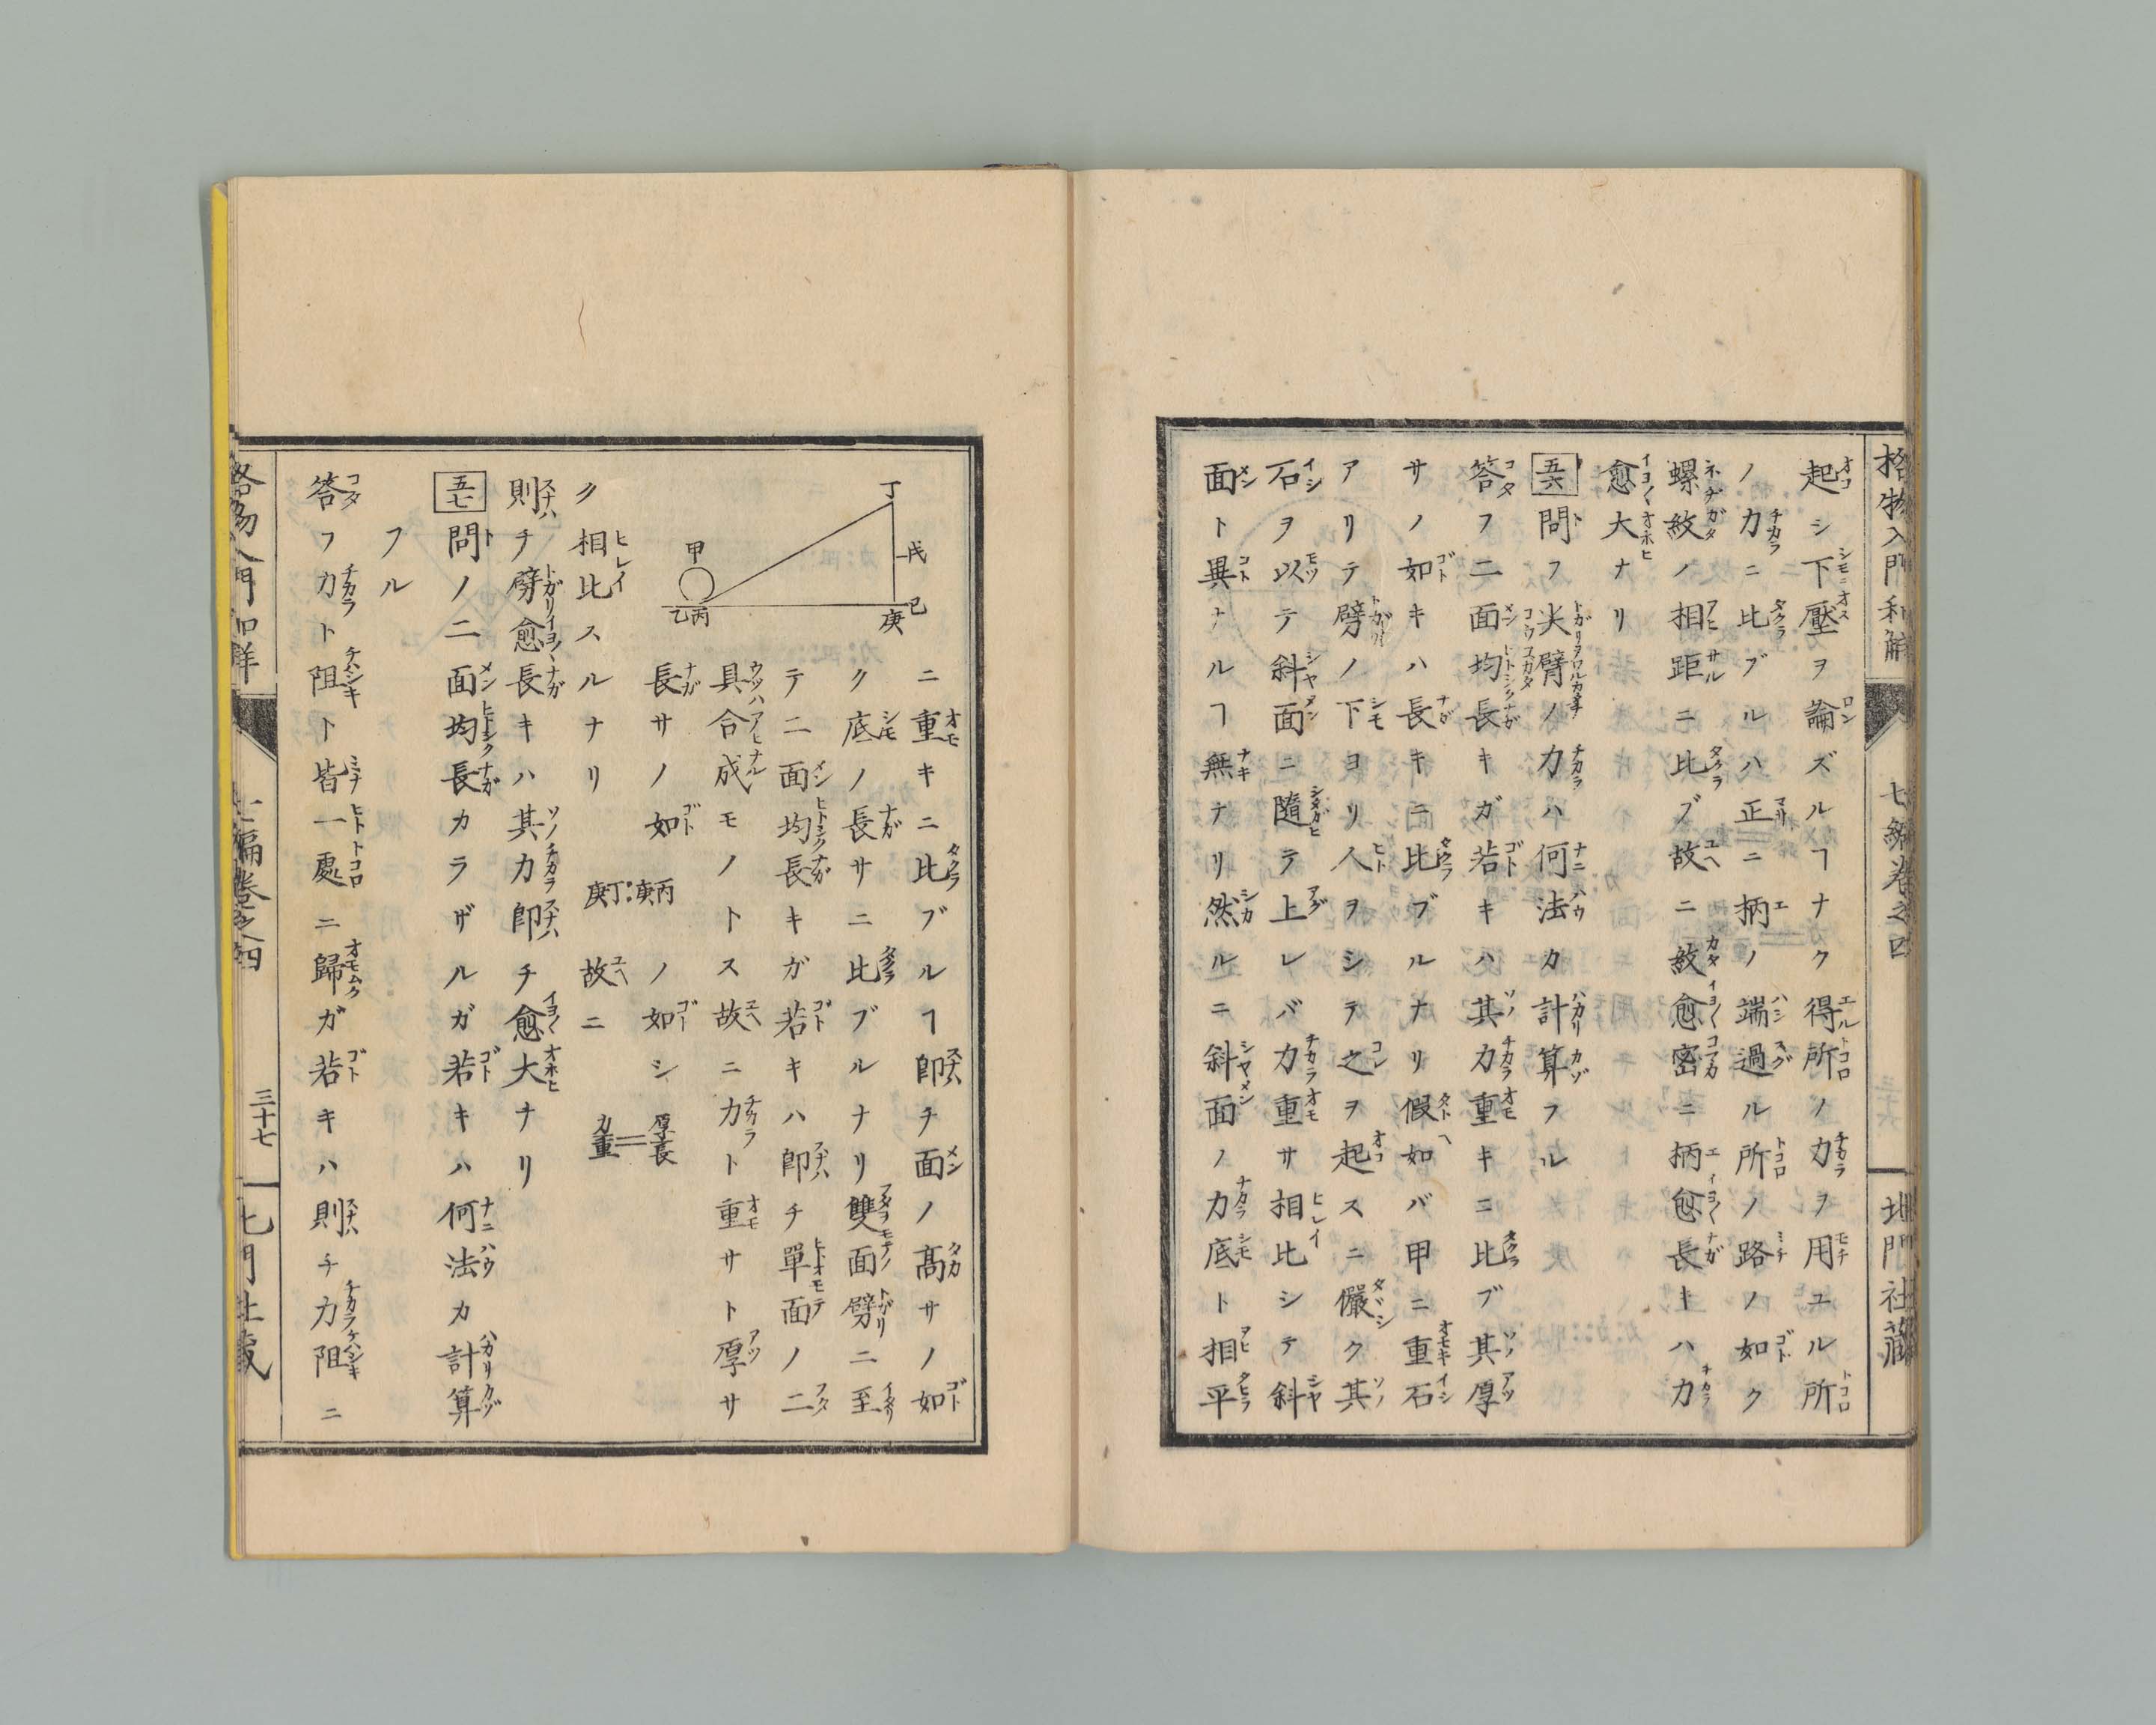 格物入門和解 七編卷之四 北門社藏
起シ下壓ヲ論ズルヿナク得所ノ力ヲ用ユル所
ノ力ニ比ブルハ正ニ柄ノ端過ル所ノ路ノ如ク
螺紋ノ相距ニ比ブ故ニ紋愈密ニ柄愈長キハ力
愈大ナリ
五六 問フ尖劈ノ力ハ何法カ計算フル
答フ二面均長キガ若キハ其力重キニ比ブ其厚
サノ如キハ長キニ比ブルナリ假如バ甲ニ重石
アリテ劈ノ下ヨリ人ヲシテ之ヲ起スニ儼ク其
石ヲ以テ斜面ニ隨テ上レバ力重サ相比シテ斜
面ト異ナルヿ無ナリ然ルニ斜面ノ力底ト相平
ニ重キニ比ブルヿ即チ面ノ高サノ如
ク底ノ長サニ比ブルナリ雙面劈ニ至
テ二面均長キガ若キハ即チ單面ノ二
具合成モノトス故ニ力ト重サト厚サ
長サノ如 庚丁:庚丙 ノ如シ 力重＝厚長
ク相比スルナリ 故ニ
則チ劈愈長キハ其力即チ愈大ナリ
五七 問ノ二面均長カラザルガ若キハ何法カ計算
フル
答フ力ト阻ト皆一處ニ歸ガ若キハ則チ力阻ニ
丁
戊
己
庚
甲
乙丙
格物入門和解 七編卷之四 三十七 北門社藏